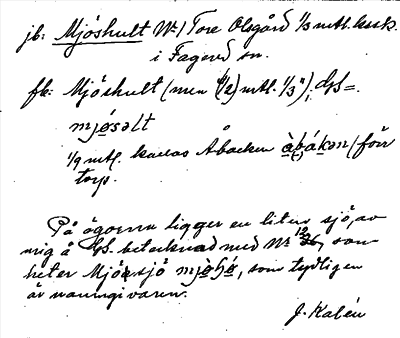 jb: Mjöshult Nr 1 Tore Olsgård 1/3 mtl. kssk.
i Fagered sn.
fb: Mjöshult (men 1/2) mtl. 1/3"); dgs =.
mjøsəlt
1/9 mtl. kallas Åbacken åbåkən (förr
torp.
På ägorna ligger en liten sjö, av
mig å GS. betecknad med Nr 1236, som
heter Mjösjö, som tydligen
är namngivaren.
J. Kalén